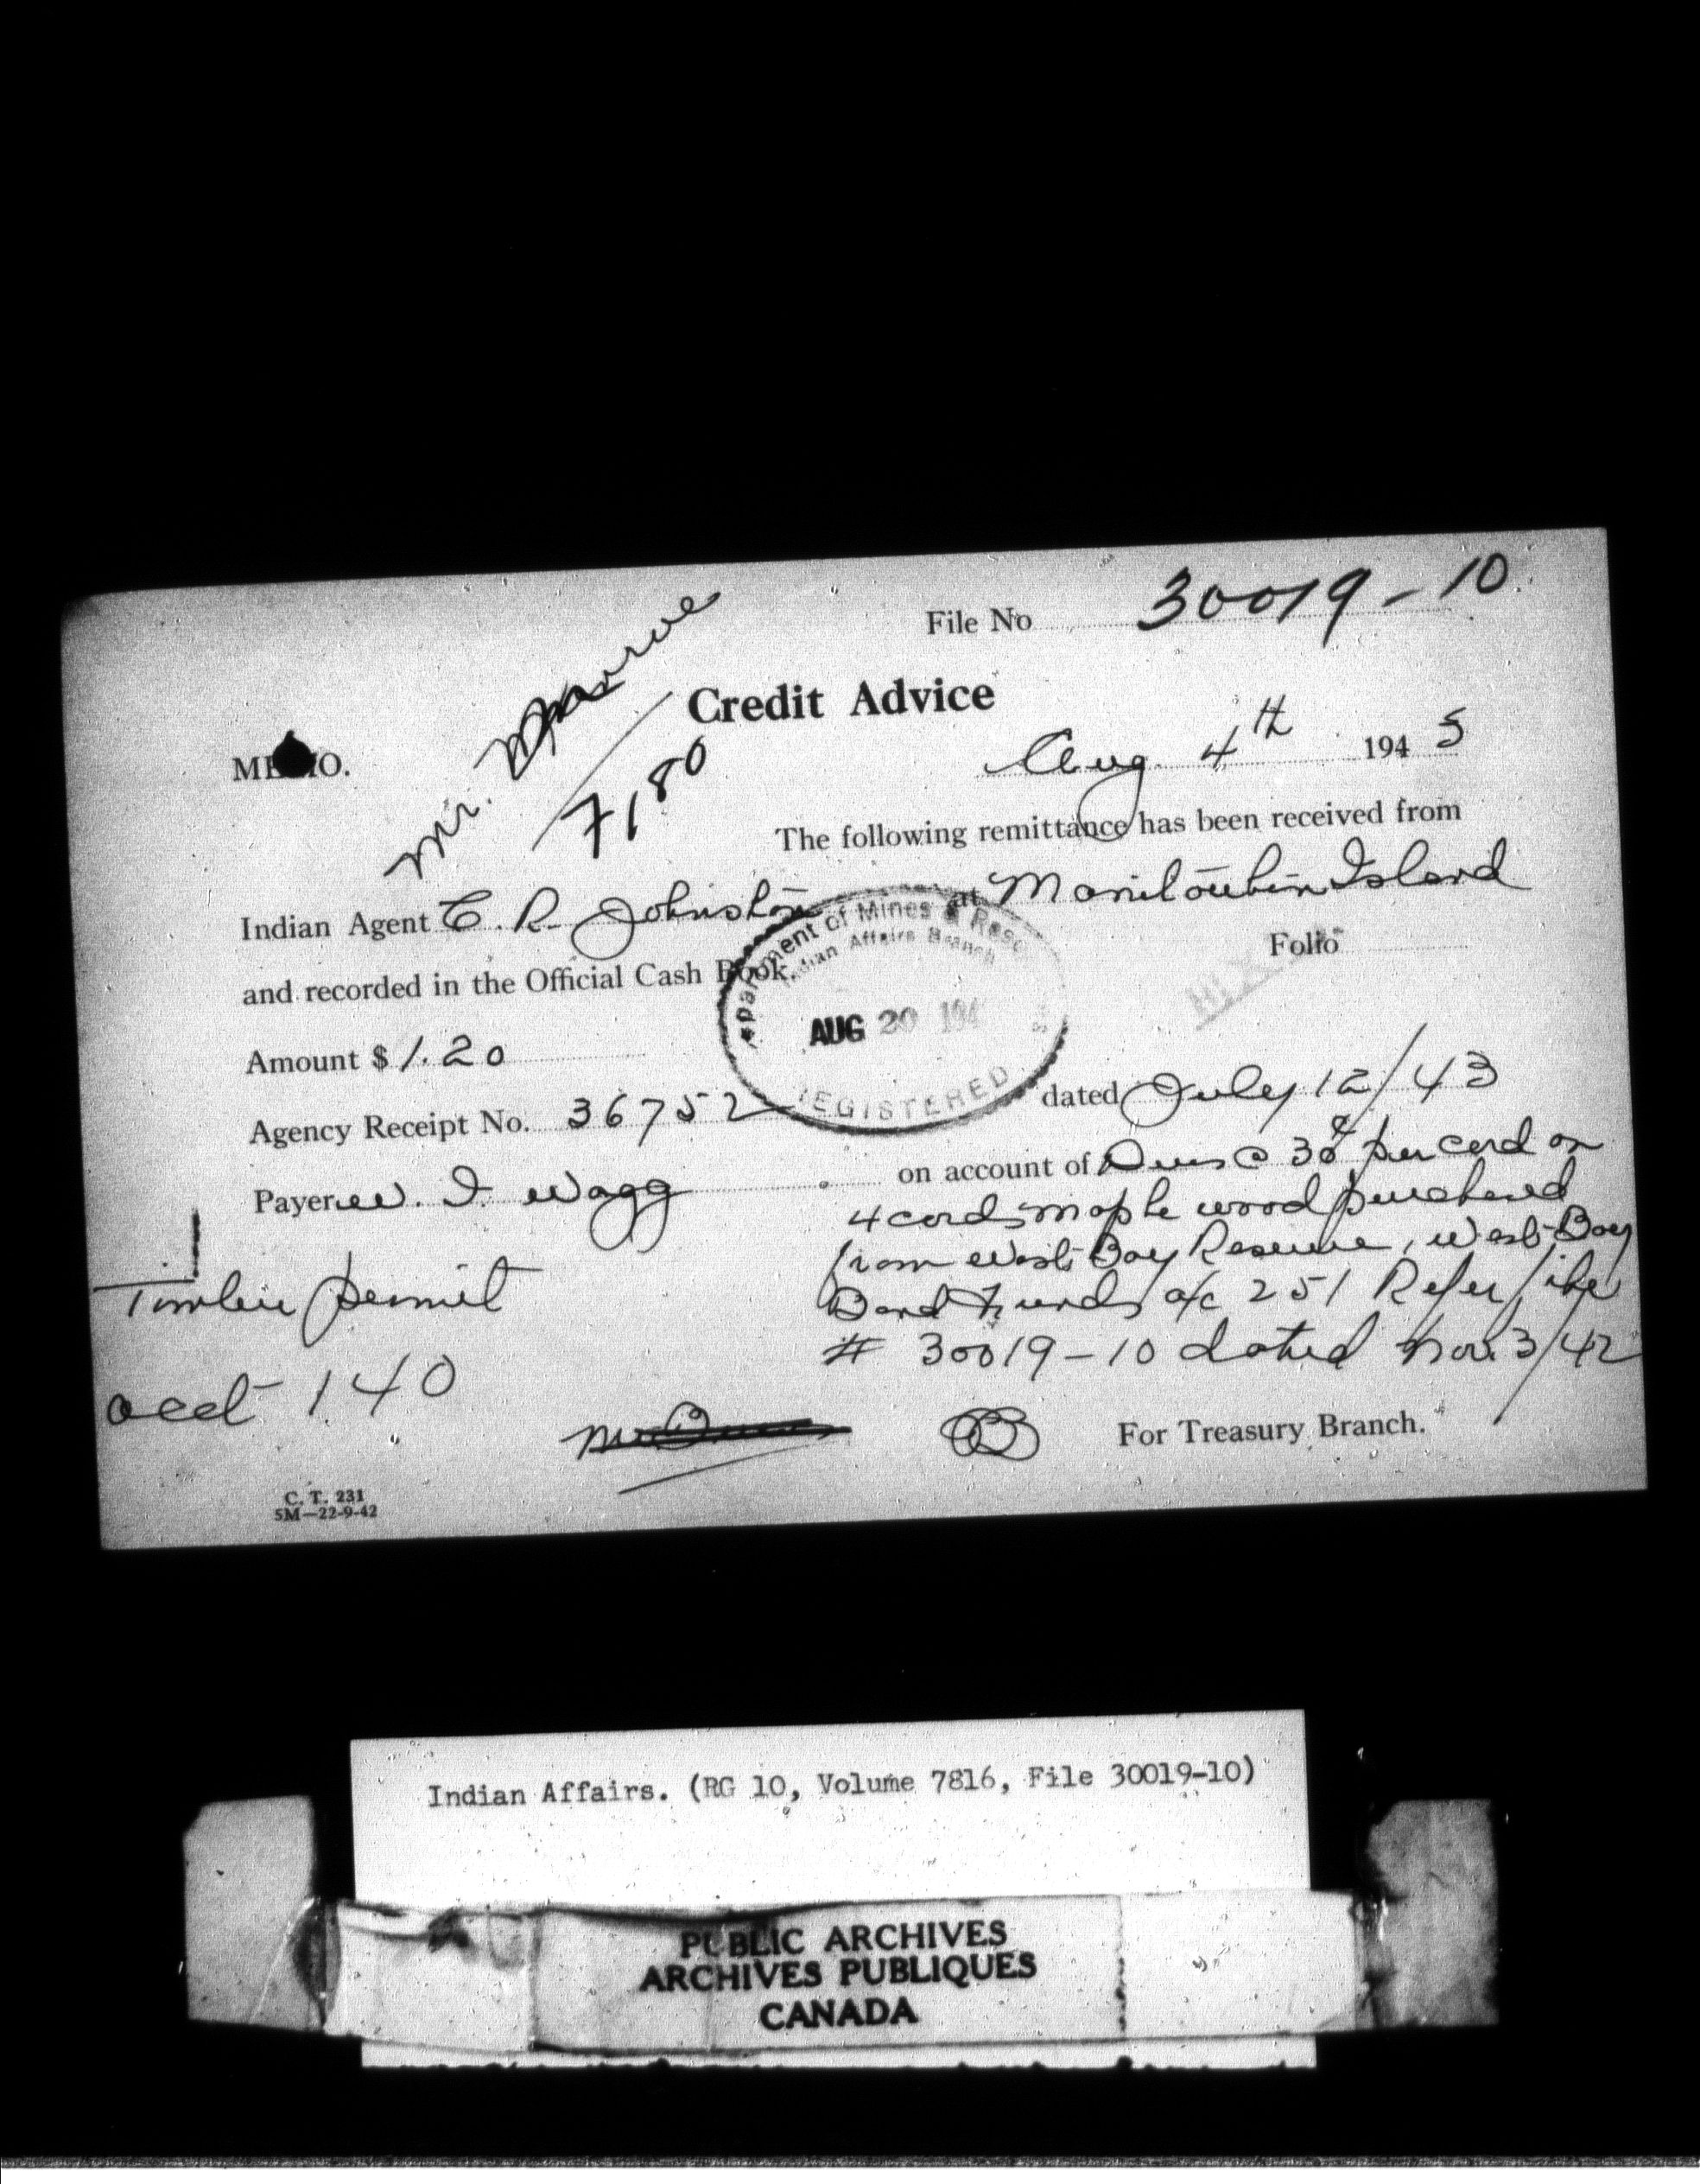 File No 30019-10
Mr.
Credit Advice
MEMO.
Aug. 4th 1945
71 80
The following remittance has been received from
Indian Agent C. R. Johnston at Manitoulin Island
and recorded in the Official Cash Book. Folio
Department of Mines & Reso
Indian Affairs Branch
AUG 20 194
REGISTERED
Amount $ 1.20
Agency Receipt No. 36752 dated July 12/43
Payer W. I. Wagg on account of Dues @ 30¢ per cord on
4 cords maple wood purchased
from West Bay Reserve, West Bay
Band Funds a/c 251 Refer file
# 30019-10 dated Nov. 3/42
Timber permit
acct 140
For Treasury Branch.
C. T. 231
5M-22-9-42
Indian Affairs. (RG 10, Volume 7816, File 30019-10)
PUBLIC ARCHIVES
ARCHIVES PUBLIQUES
CANADA